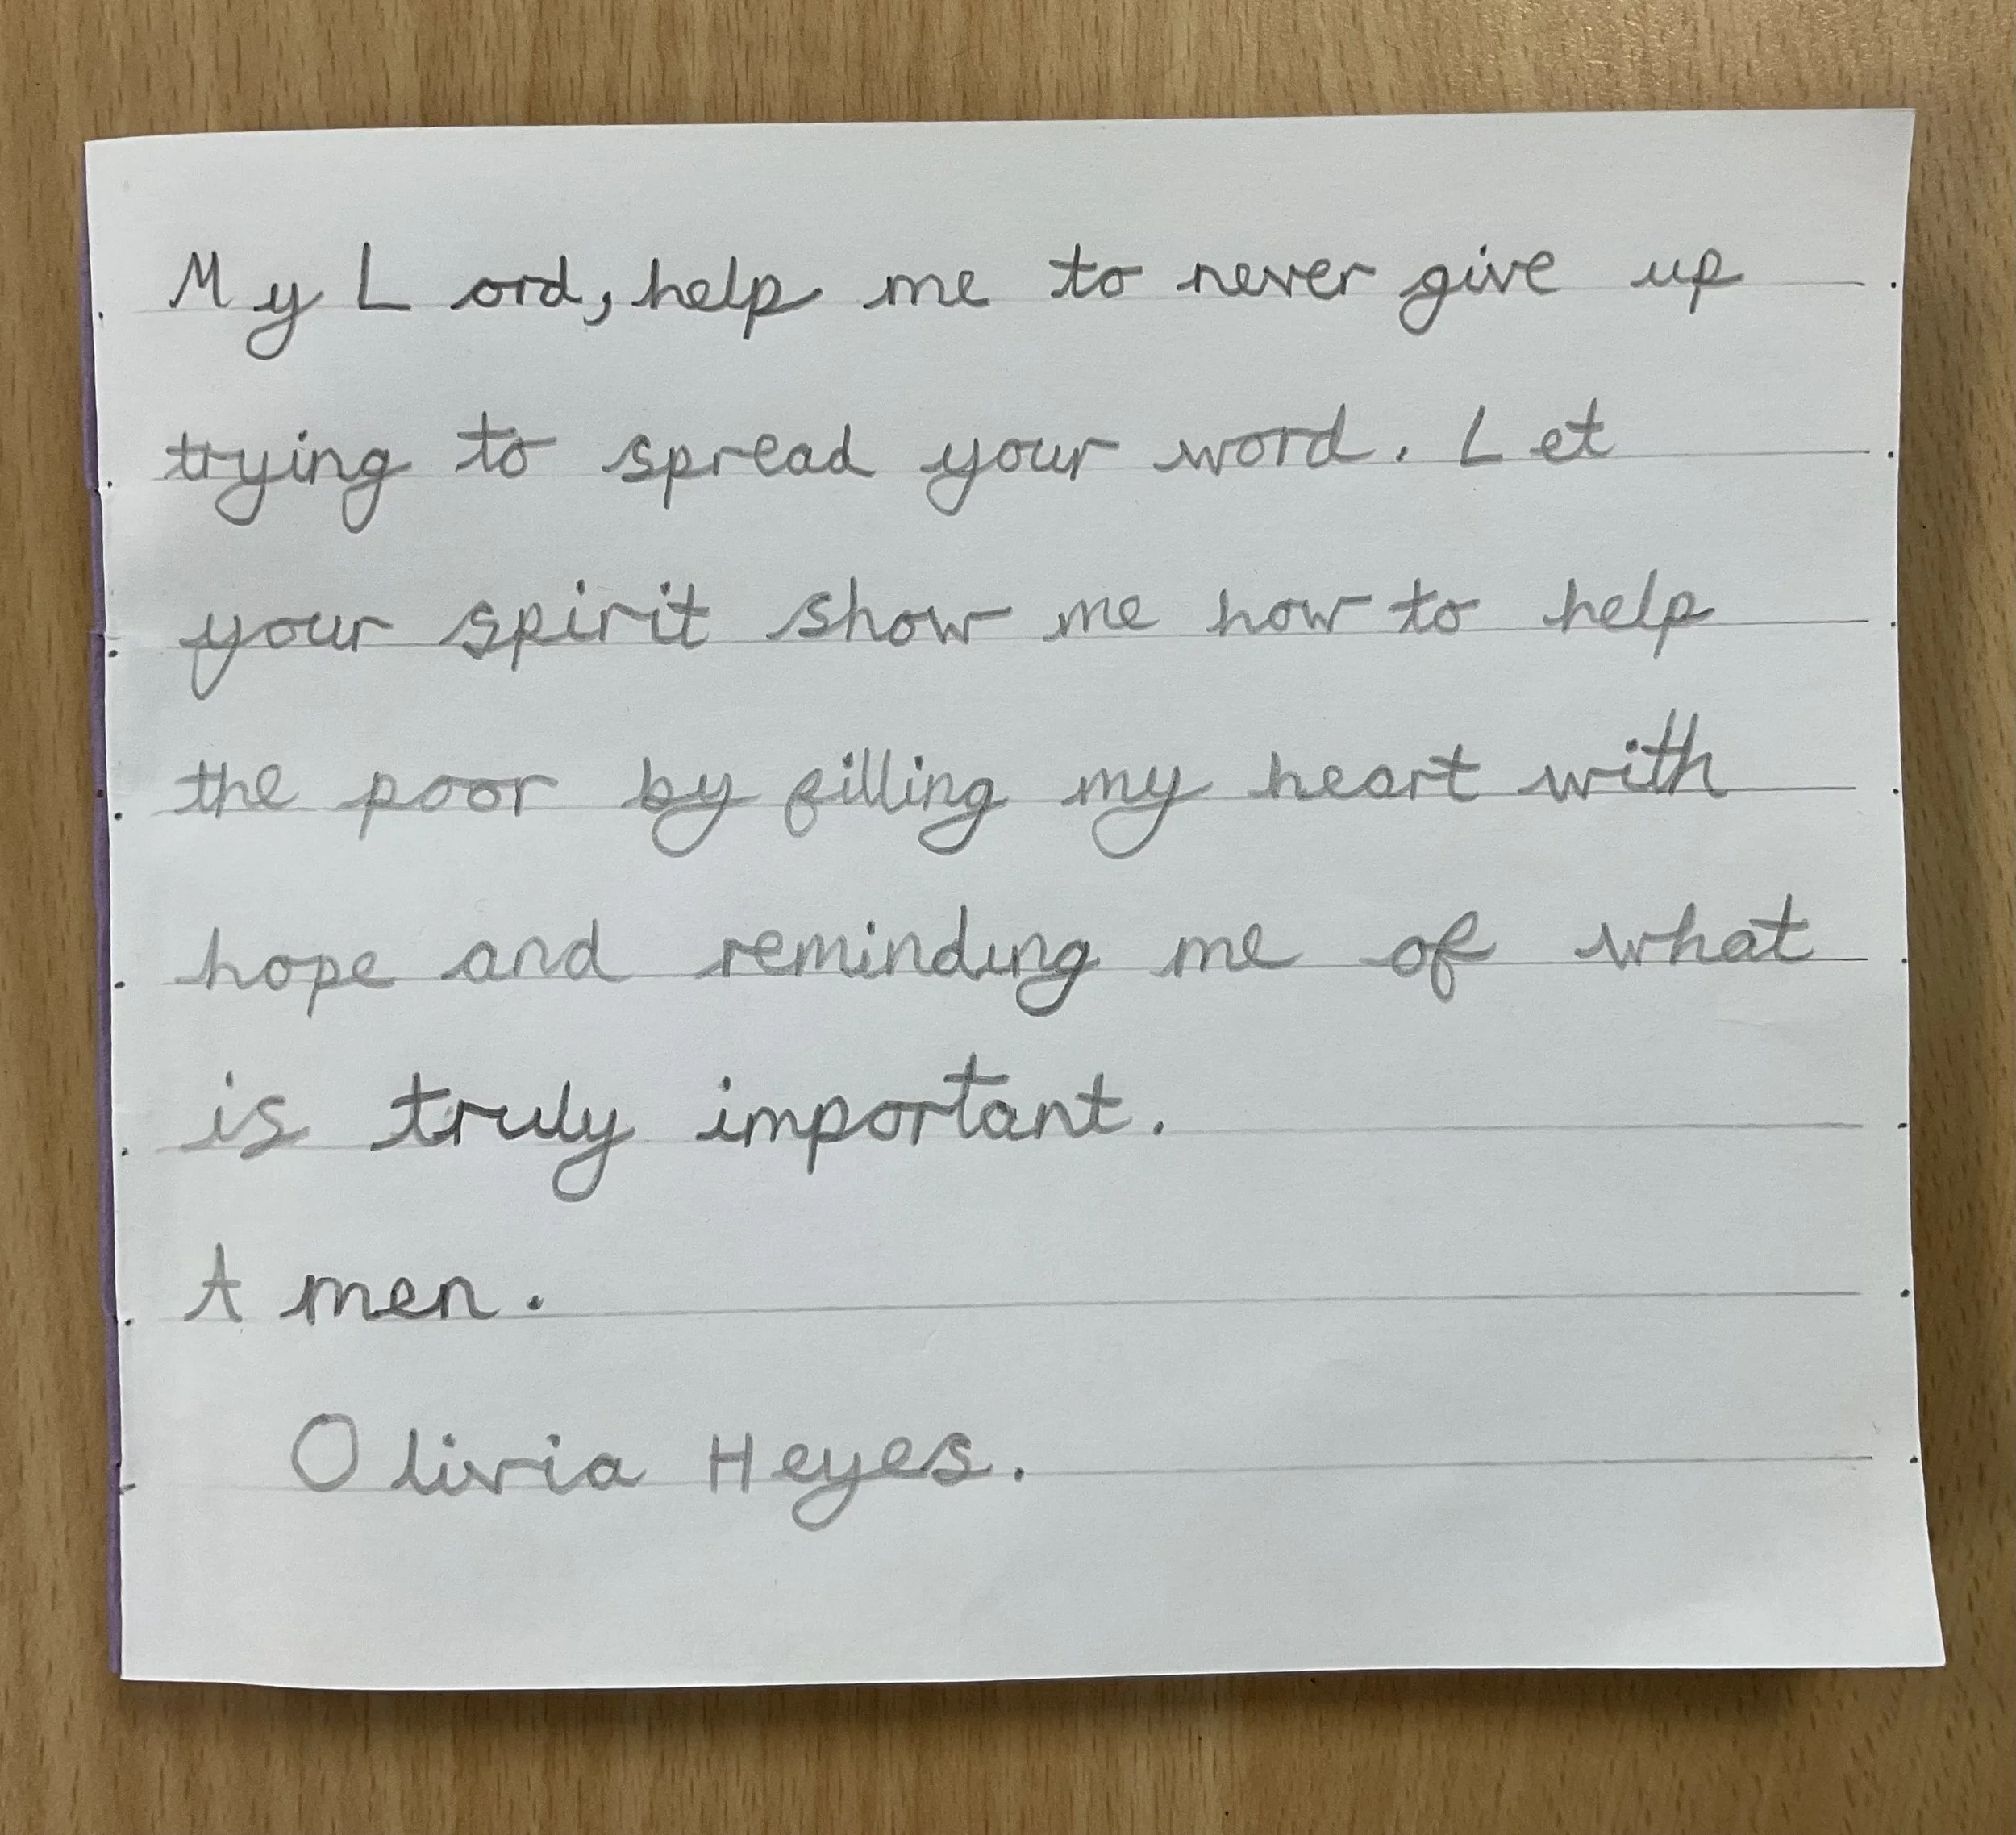 My Lord, help me to never give up
trying to spread your word. Let
your spirit show me how to help
the poor by filling my heart with
hope and reminding me of what
is truly important.
Amen.
Olivia Heyes.